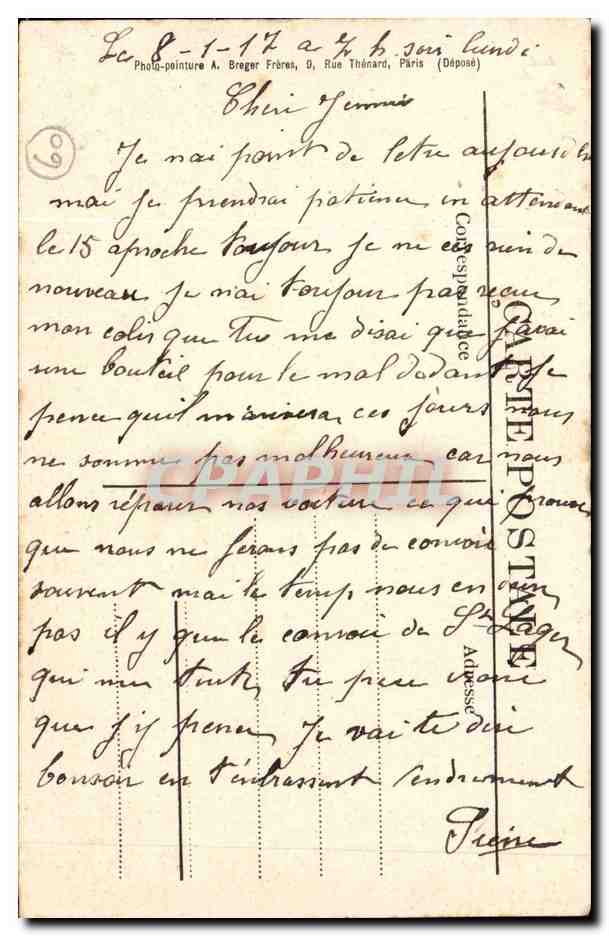 Le 8-1-17 a 7 h soir lundi
Photo-peinture A. Breger Frères, 9, Rue Thénard, Paris (Déposé)
60
Cheri
Je nai point de letre aujourd
mai je prendrai patience en attendant
le 15 aproche toujour je ne rien de
nouveau je nai toujour pas recue
mon colis que tu me disai que j'avai
une bouteil pour le mal dodant je
pence quil marivera ces jours nous
ne somme pas malheureux car nous
allons réparer nos voiture ce qui
que nous ne ferons pas de convoie
souvent mai le temp nous en
pas il y que le convoie de St Lager
qui me tente, tu peu
que j'y pence, Je vai te dire
bonsoir en t'enbrassent tendrement
Pierre
CARTE POSTALE
Correspondance
Adresse
CPAPHIL